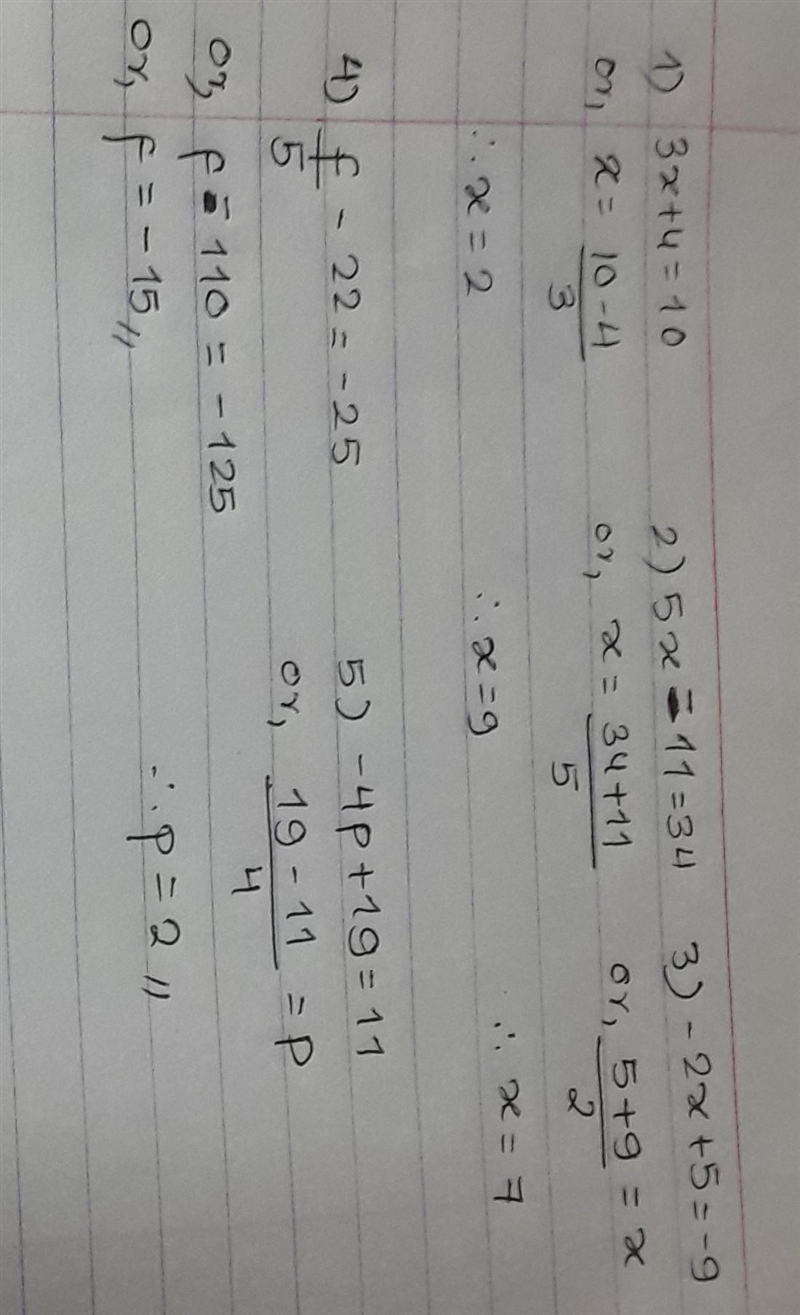 1) 3x+4=10 2) 5x-11=34 3) -2x+5=-9
or, x = 10-4/3 or, x = 34+11/5 or, 5+9/2 = x
∴ x = 2 ∴ x = 9 ∴ x = 7
4) f/5 - 22 = -25 5) -4p+19=11
or, 19-11/4 = p
or, f-110 = -125
or, f = -15,, ∴ p = 2 ,,